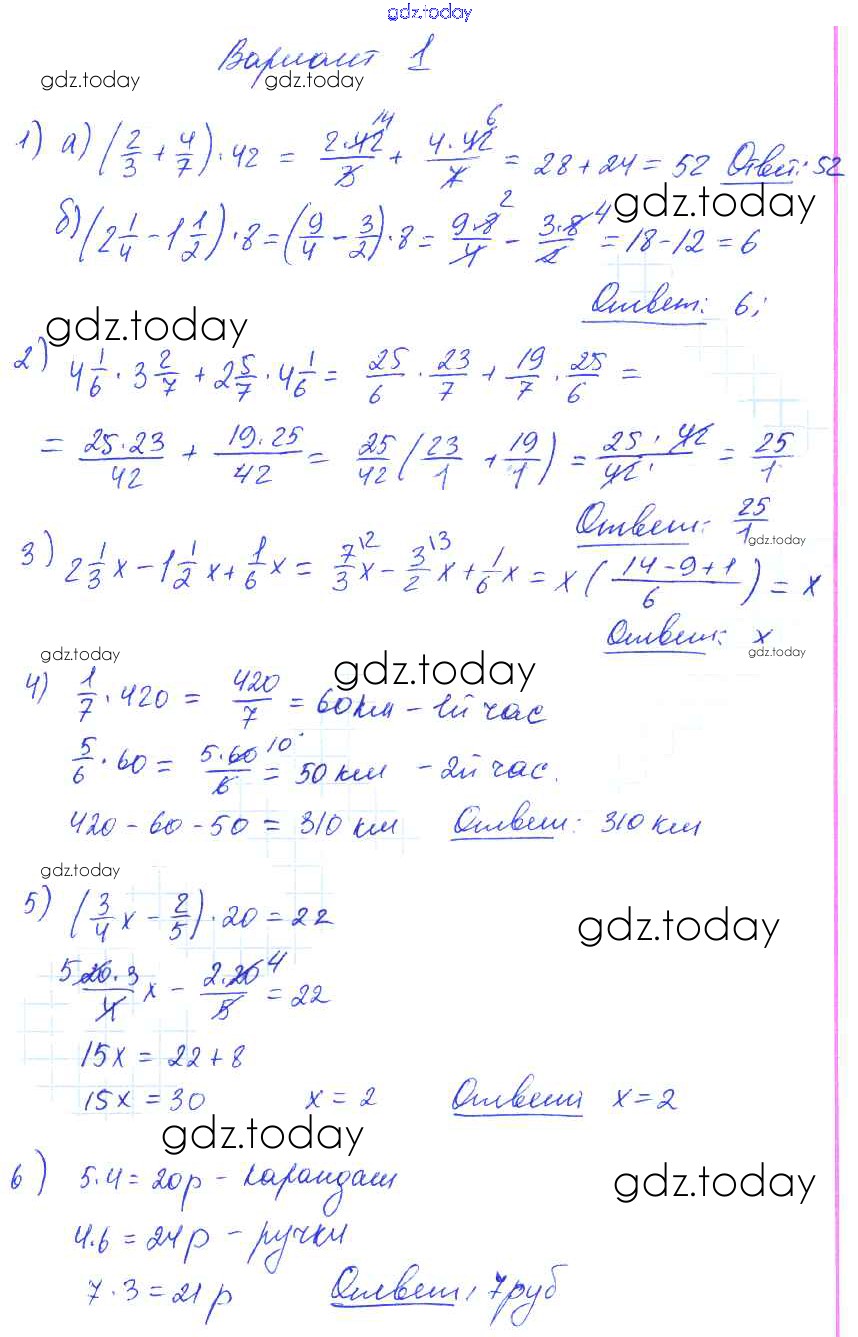 gdz.today
Вариант 1
gdz.today gdz.today
1) а) (2/3 + 4/7) · 42 = 2·42/3 14 + 4·42/7 6 = 28 + 24 = 52 Ответ: 52
gdz.today
б) (2 1/4 − 1 1/2) · 8 = (9/4 − 3/2) · 8 = 9·8/4 2 − 3·8/2 4 = 18 − 12 = 6
Ответ: 6;
gdz.today
2) 4 1/6 · 3 2/7 + 2 5/7 · 4 1/6 = 25/6 · 23/7 + 19/7 · 25/6 =
= 25·23/42 + 19·25/42 = 25/42 (23/1 + 19/1) = 25·42/42· = 25/1
Ответ: 25/1
gdz.today
3) 2 1/3 x − 1 1/2 x + 1/6 x = 7/3 12 x − 3/2 13 x + 1/6 x = x (14−9+1/6) = x
Ответ: x
gdz.today gdz.today gdz.today
4) 1/7 · 420 = 420/7 = 60 км − 1й час
5/6 · 60 = 5·60/6 10 = 50 км − 2й час.
420 − 60 − 50 = 310 км Ответ: 310 км
gdz.today
5) (3/4 x − 2/5) · 20 = 22
gdz.today
5 20·3/4 x − 2·20/5 4 = 22
15x = 22 + 8
15x = 30 x = 2 Ответ x = 2
gdz.today
6) 5·4 = 20р − карандаш
gdz.today
4·6 = 24р − ручки
7·3 = 21 р Ответ: 7 руб